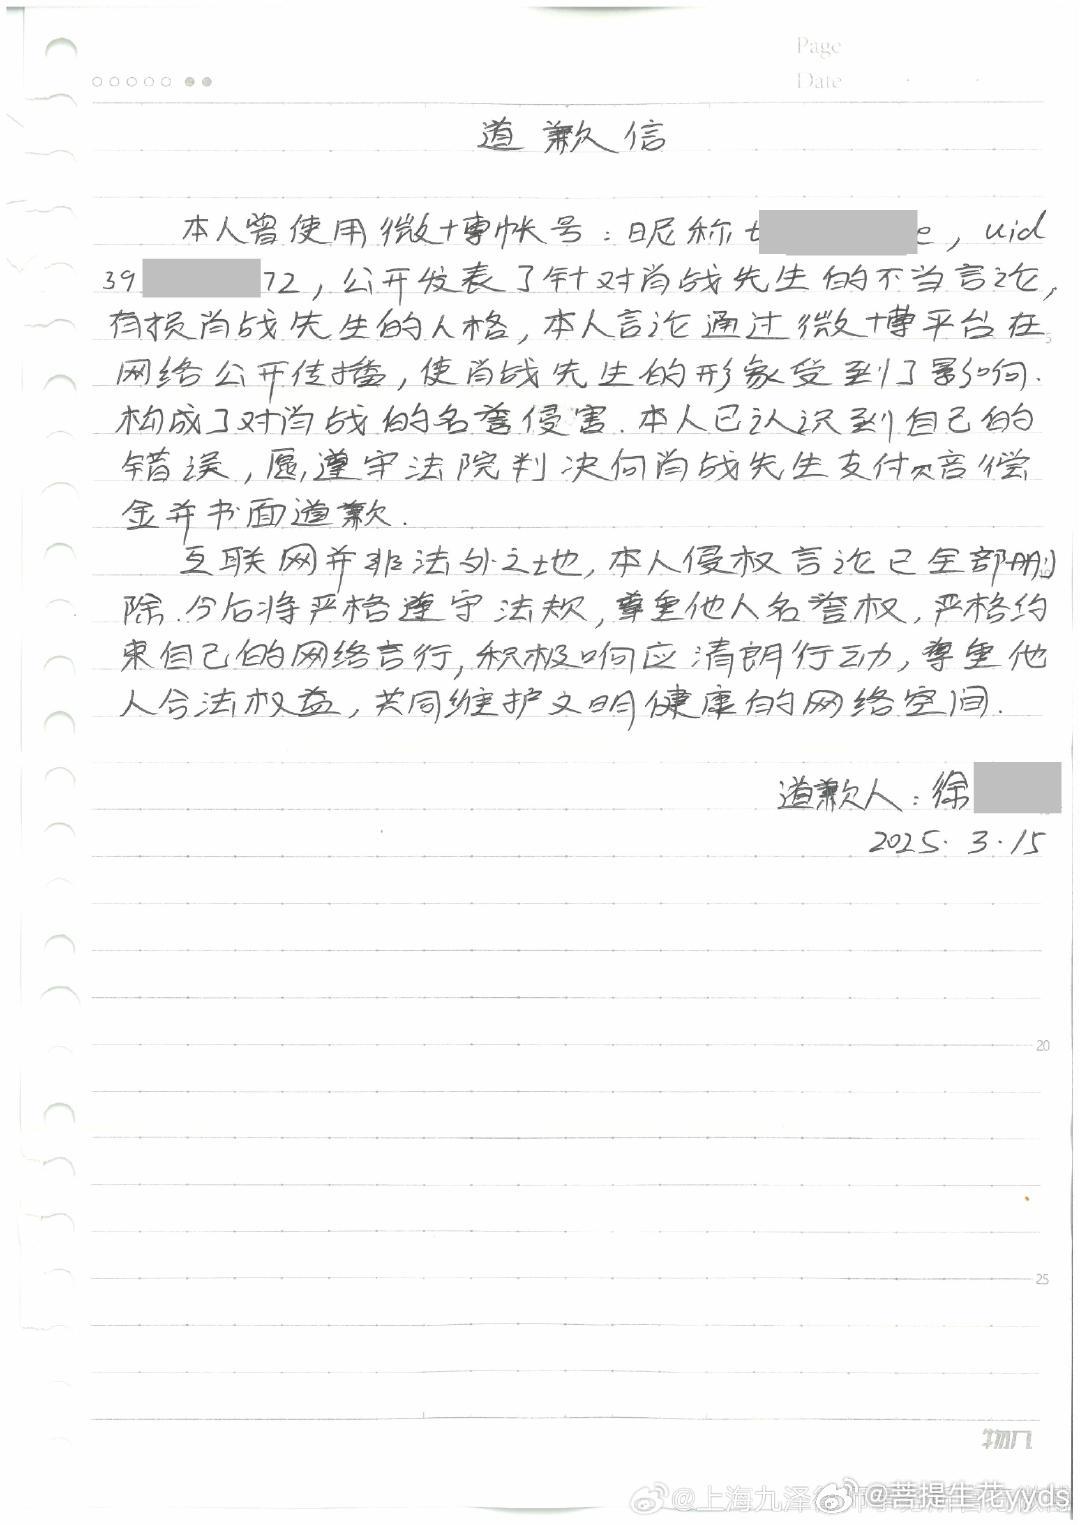 Page
Date
道歉信
本人曾使用微博帐号：昵称t e，uid
39 72，公开发表了针对肖战先生的不当言论，
有损肖战先生的人格，本人言论通过微博平台在
网络公开传播，使肖战先生的形象受到了影响.
构成了对肖战的名誉侵害.本人已认识到自己的
错误，愿遵守法院判决向肖战先生支付赔偿
金并书面道歉.
互联网并非法外之地，本人侵权言论已全部删
除.今后将严格遵守法规，尊重他人名誉权，严格约
束自己的网络言行，积极响应清朗行动，尊重他
人合法权益，共同维护文明健康的网络空间.
道歉人：徐
2025.3.15
20
25
物几
@上海九泽律师
@菩提生花yyds